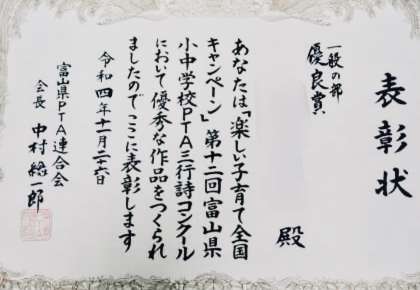 表彰状
一般の部
優良賞
殿
あなたは「楽しい子育て全国
キャンペーン」第十二回富山県
小中学校PTA三行詩コンクール
において優秀な作品をつくられ
ましたのでここに表彰します
令和四年十一月二十六日
富山県PTA連合会
会長 中村総一郎